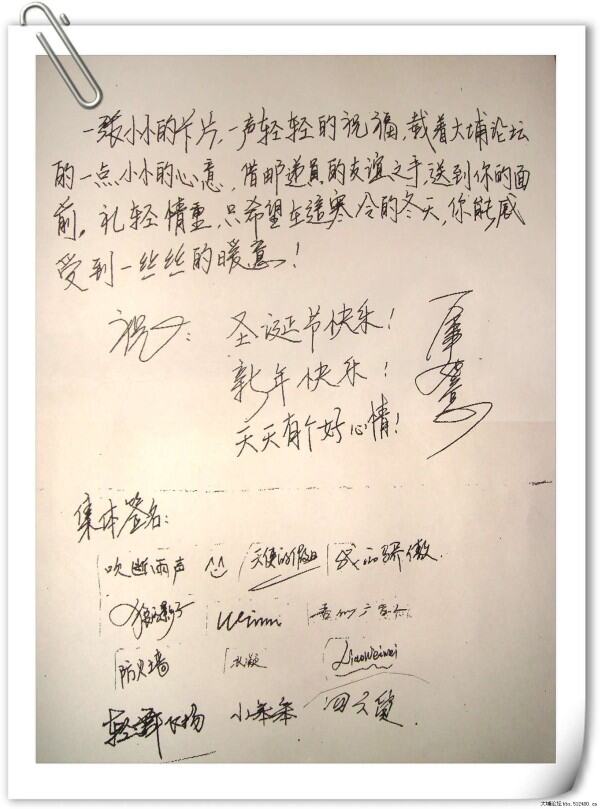 一张小小的卡片,一声轻轻的祝福,载着大埔论坛
的一点小小的心意,借邮递员的友谊之手,送到你的面
前。礼轻情重,只希望在這寒冷的冬天,你能感
受到一丝丝的暖意!
祝: 圣诞节快乐! 万事如意
新年快乐!
天天有个好心情!
集体签名:
吹断雨声 天使的假日 我的骄傲
狼的影子 winni
防火墙 水凝 Liaoweiwei
轻舞飞扬 小笨笨
大埔论坛 bbs.512480.cn